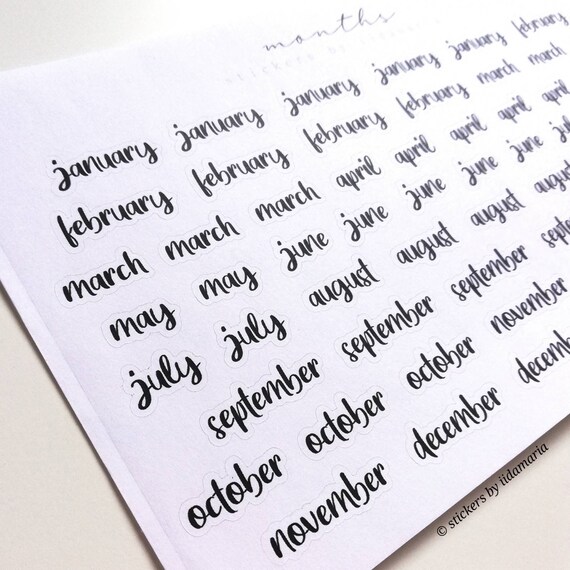 months
stickers by iidamaria
january january january january january february
february february february february march march
march march march april april april april april
may may june june june june june july
july july august august august august
september september september
october october october november
november december december
© stickers by iidamaria